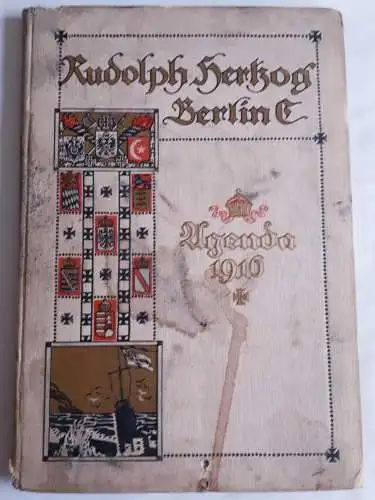 Rudolph Hertzog
Berlin C
Agenda
1916